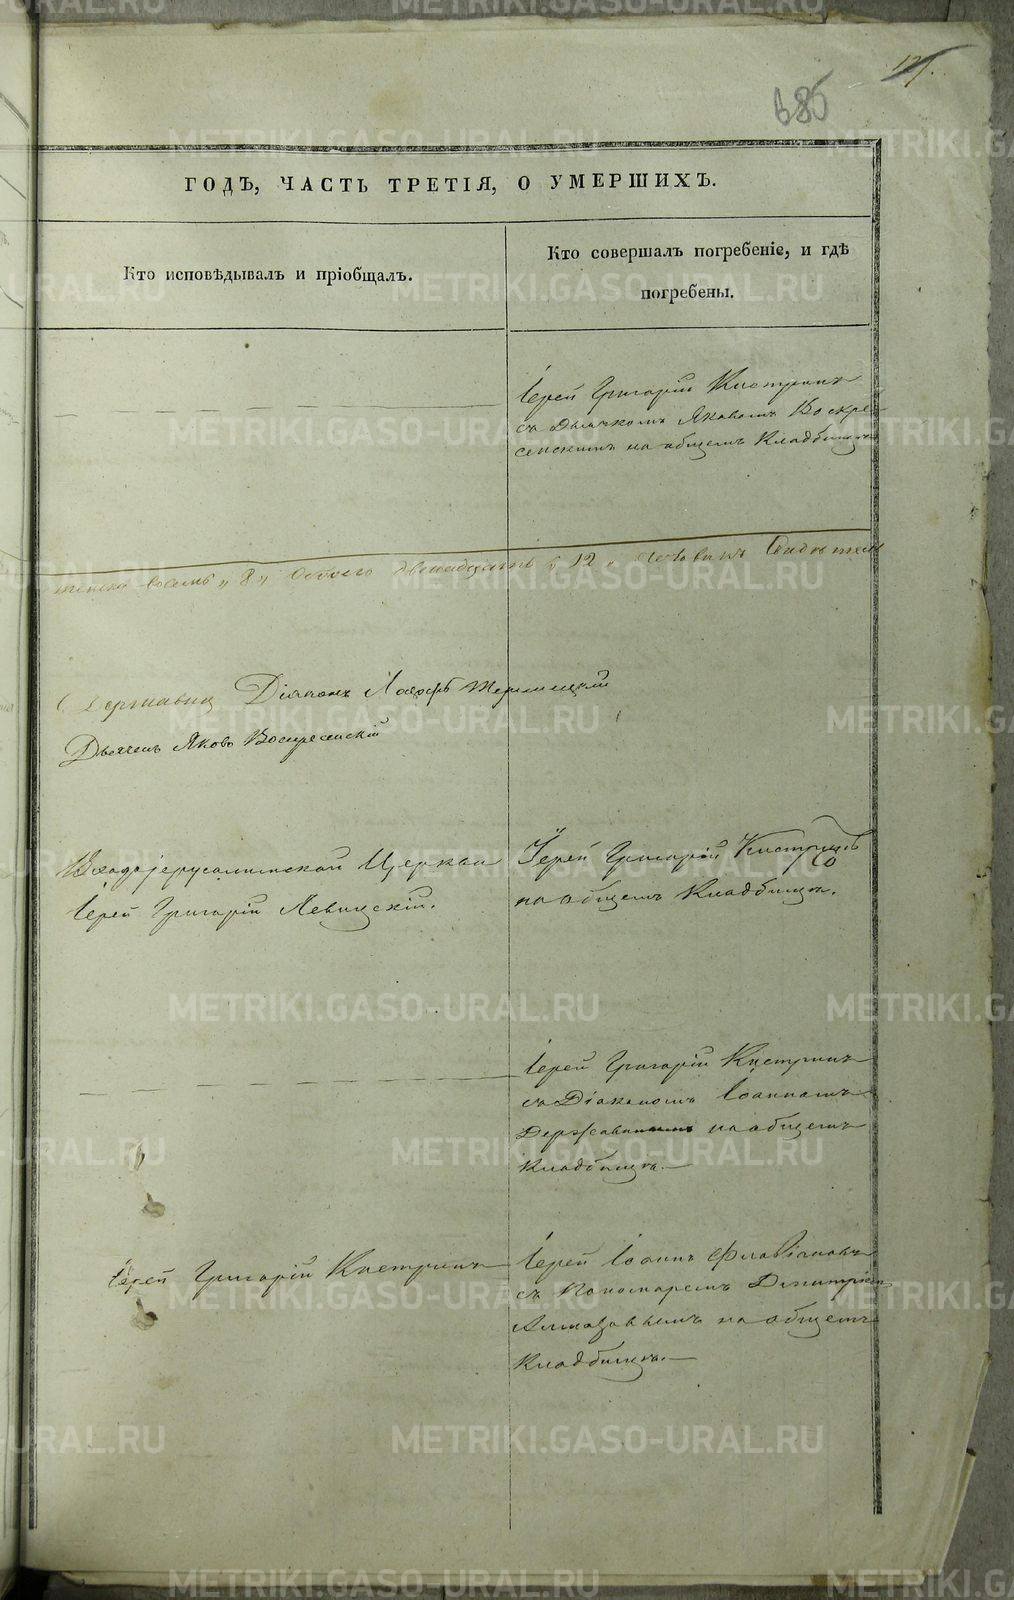 685
ГОДЪ, ЧАСТЬ ТРЕТІЯ, О УМЕРШИХЪ.
Кто исповѣдывалъ и пріобщалъ.
Кто совершалъ погребеніе, и гдѣ
погребены.
Іерей Григорій Кистринъ
съ Дьячкомъ Яковомъ Воскре
сенскимъ на общемъ Кладбищѣ
восемь „8„ Обоего двенадцать „12„
Діаконъ
Дьячекъ Яковъ Воскресенскій
Входоіерусалимской Церкви
Іерей Григорій Левицскій.
Іерей Григорій
на общемъ Кладбищѣ.
Іерей Григорій Кистринъ
съ Діакономъ Іоанномъ
на общемъ
Кладбищѣ.—
Іерей Григорій Кистринъ
Іерей Іоаннъ Флавіановъ
съ Пономаремъ Димитріемъ
Алмазовымъ на общемъ
Кладбищѣ.—
METRIKI.GASO-URAL.RU